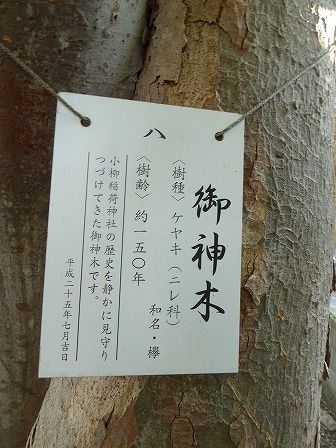 八
御神木
〈樹種〉ケヤキ（ニレ科）
和名・欅
〈樹齢〉約一五〇年
小柳稲荷神社の歴史を静かに見守り
つづけてきた御神木です。
平成二十五年七月吉日